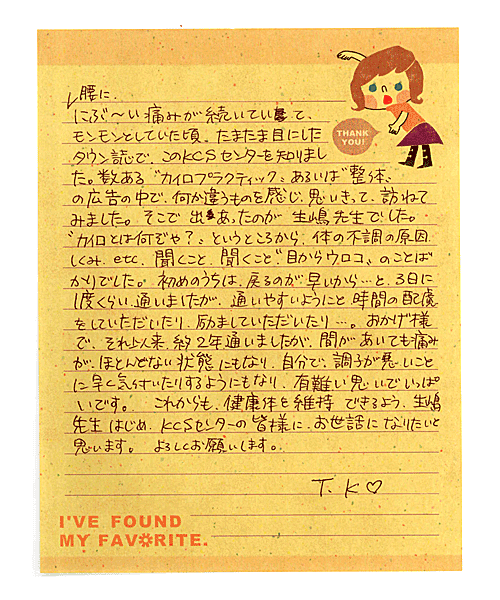 腰に、
にぶ〜い痛みが続いていて、
モンモンとしていた頃、たまたま目にした
THANK YOU!
タウン誌で、このKCSセンターを知りまし
た。数ある"カイロプラクティック"あるいは"整体"
の広告の中で、何か違うものを感じ、思いきって、訪ねて
みました。そこで出あったのが生嶋先生でした。
"カイロとは何ぞや？"というところから、体の不調の原因、
しくみ、etc. 聞くこと、聞くこと"目からウロコ"のことば
かりでした。初めのうちは、戻るのが早いから…と、3日に
1度くらい通いましたが、通いやすいようにと時間の配慮
をしていただいたり、励ましていただいたり…。おかげ様
で、それ以来、約2年通いましたが、間があいても痛み
が、ほとんどない状態にもなり、自分で、調子が悪いこと
に早く気付いたりするようにもなり、有難い思いでいっぱ
いです。これからも、健康体を維持できるよう、生嶋
先生はじめ、KCSセンターの皆様に、お世話になりたいと
思います。よろしくお願いします。
T. K♡
I'VE FOUND
MY FAVORITE.